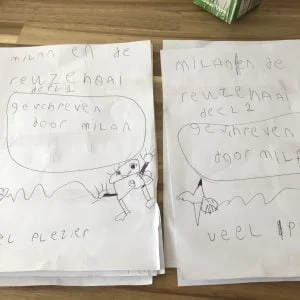 milan en de
reuzenaai
deel 1
geschreven
door milan
EL PLEZIER
milan en de
reuzenaai
deel 2
geschreven
door mila
veel p